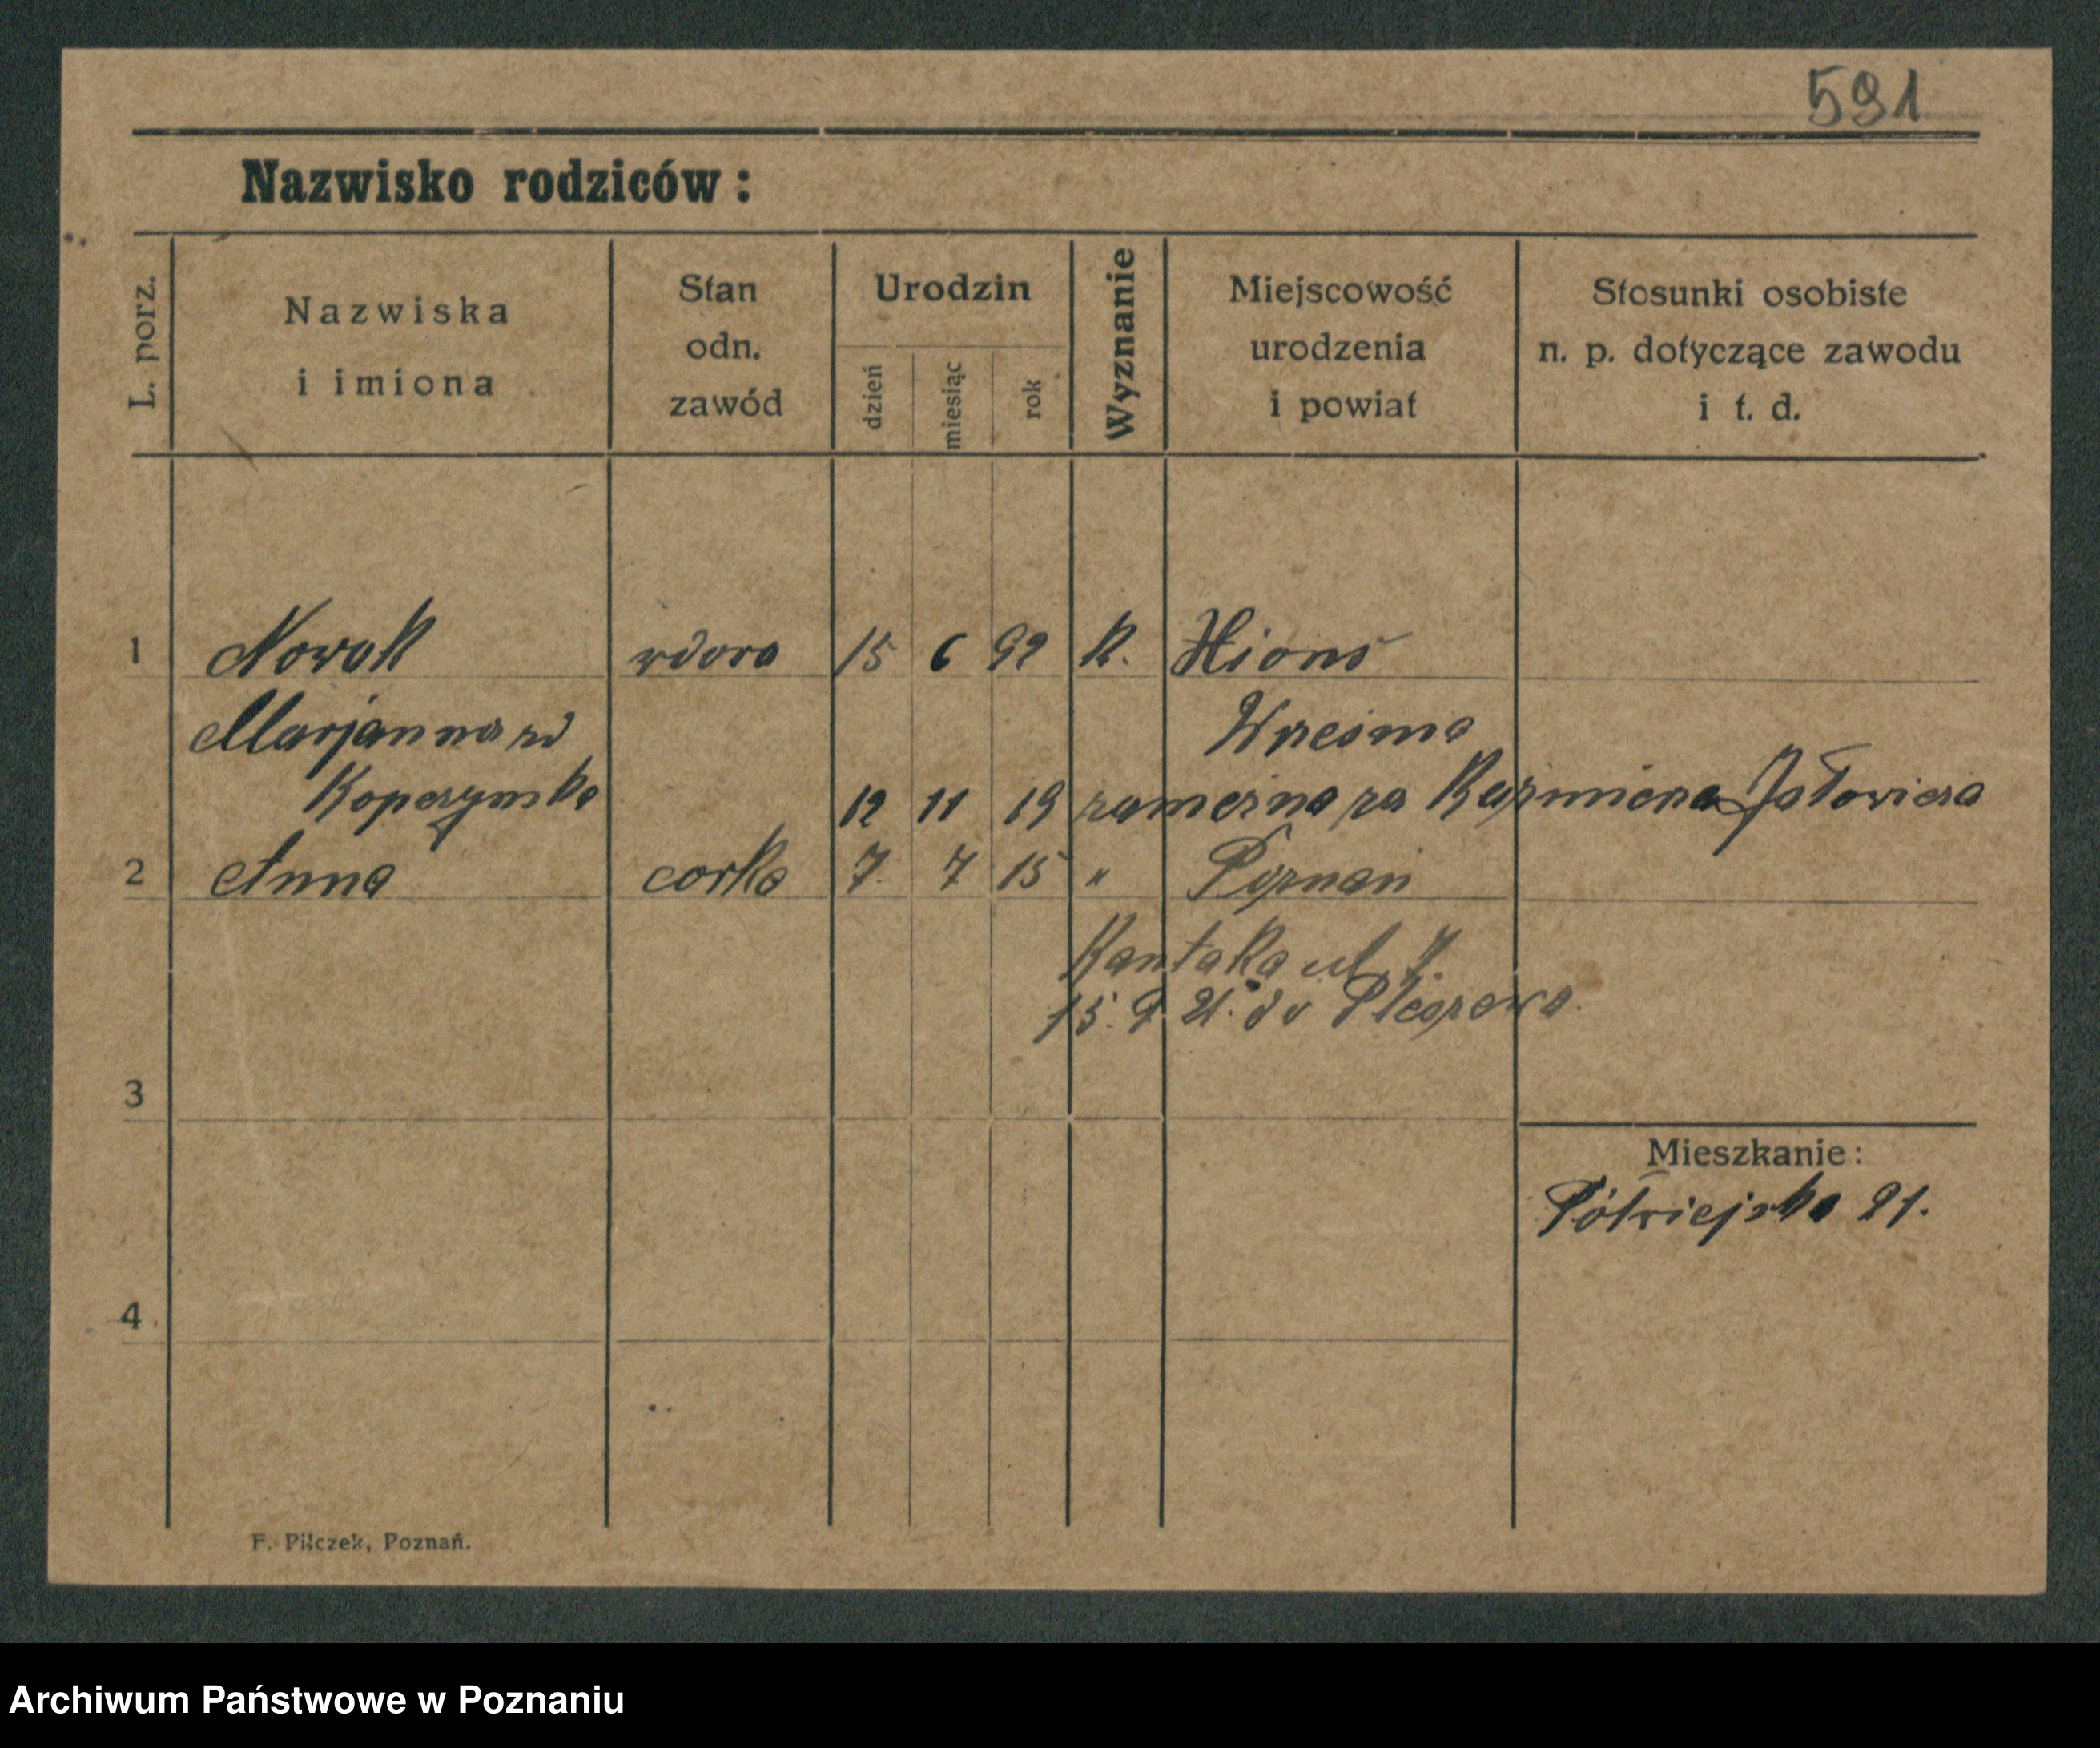 591
Nazwisko rodziców:
L. porz.
Nazwiska
i imiona
Stan
odn.
zawód
Urodzin
dzień
miesiąc
rok
Wyznanie
Miejscowość
urodzenia
i powiat
Stosunki osobiste
n. p. dotyczące zawodu
i t. d.
1 Nowak wdowa 15 6 92 K. Xions
Marjanna zd Wześnia
Kopczyńska
12 11 19 zamężna za Kazmierza Jałowicza
2 Anna corka 7 7 15 " Poznań
Kantaka ul 7.
15. 9 21. do Pleszewa.
3
Mieszkanie:
Półwiejska 21.
4
F. Pilczek, Poznań.
Archiwum Państwowe w Poznaniu